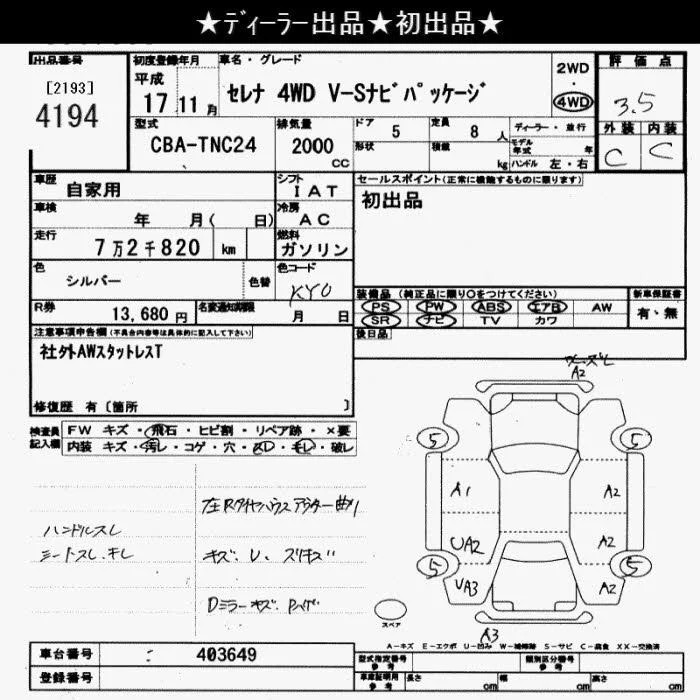 ★ﾃﾞｨｰﾗｰ出品★初出品★
出品番号
[2193]
4194
初度登録年月
平成
17 11 月
車名・グレード
セレナ 4WD V-Sﾅﾋﾞﾊﾟｯｹｰｼﾞ
2WD
・
4WD
評価点
3.5
外装 内装
C C
型式
CBA-TNC24
排気量
2000
cc
ドア
5
定員
8 人
形状
積載
kg
ディーラー・並行
モデル年式 年
ハンドル 左・右
車歴
自家用
シフト
I A T
セールスポイント(正常に機能するものに限ります)
初出品
車検
年 月( 日)
冷房
A C
走行
7 万 2 千 820 km
燃料
ガソリン
色
シルバー
色替
色コード
KY0
装備品 (純正品に限り○をつけてください)
PS PW ABS エアB AW
SR ナビ TV カワ
新車保証書
有・無
R券
13,680 円
名変通知期限
月 日
後日品
注意事項申告欄(不具合内容等は具体的に記入して下さい)
社外AWスタットレスT
修復歴 有〔箇所 〕
検査員記入欄
FW キズ・飛石・ヒビ割・リペア跡・×要
内装 キズ・汚レ・コゲ・穴・スレ・モレ・破レ
ハンドルスレ
シートスレ、キレ
左Rタイヤハウス アウター曲り
キズ、U、スリキズ
Dミラーキズ、
A2
5 5
A1 A2
UA2 A2
5 5
UA3 A2
A3
スペア
A-キズ E-エクボ U-凹み W-補修跡 S-サビ C-腐食 XX-交換済
車台番号
403649
登録番号
型式指定番号 参考
類別区分番号 参考
車庫証明用 参考
長さ cm
幅 cm
高さ cm